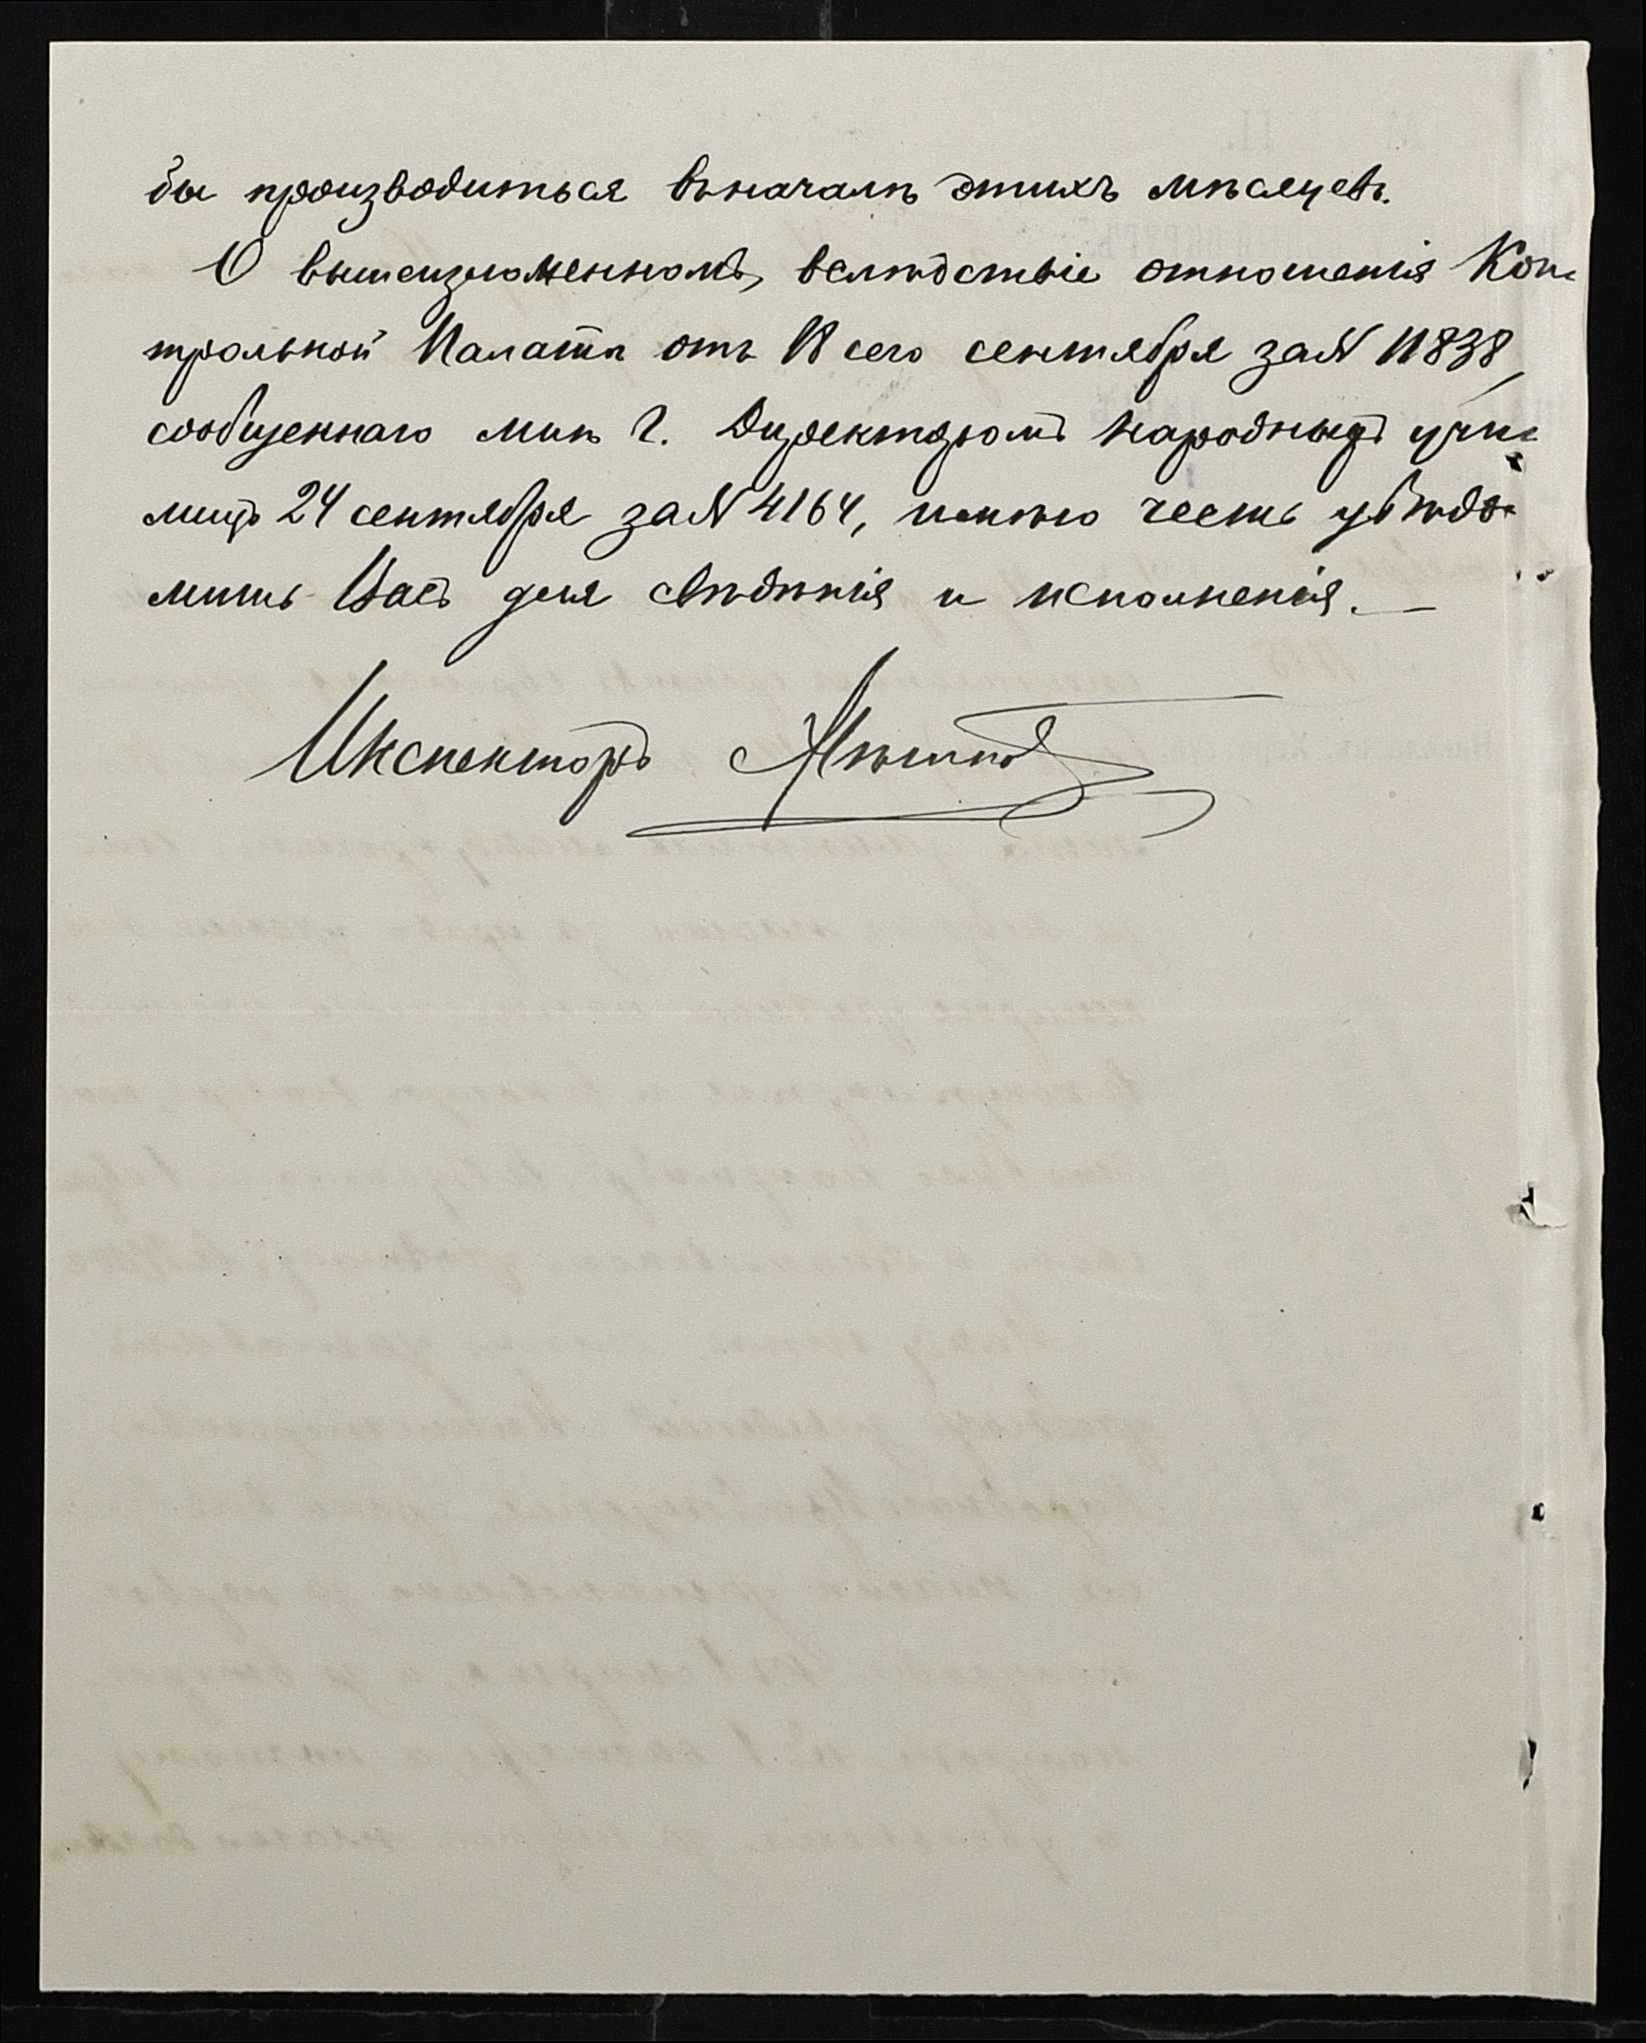 бы производиться въ началѣ этихъ мѣсяцевъ.
О вышеизложенномъ, вслѣдствіе отношенія Кон-
трольной Палаты отъ 18 сего сентября за № 11838,
сообщеннаго мнѣ Г. Директоромъ народныхъ учи-
лищъ 24 сентября за № 4164, имѣю честь увѣдо-
мить Васъ для свѣдѣнія и исполненія. —
Инспекторъ